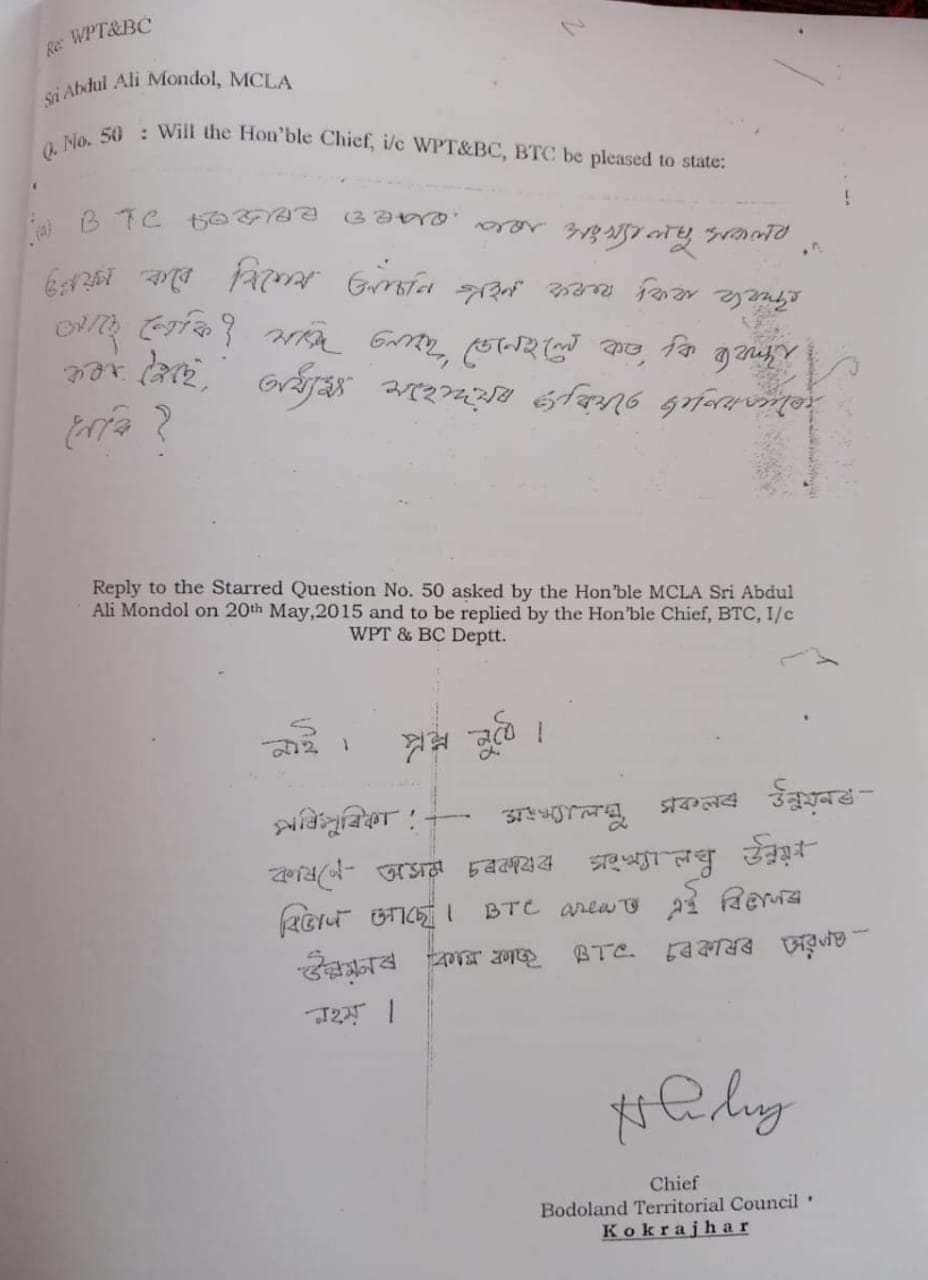 Re: WPT&BC
Sri Abdul Ali Mondol, MCLA
Q. No. 50 : Will the Hon'ble Chief, i/c WPT&BC, BTC be pleased to state:
(a) BTC চৰকাৰৰ তৰফৰ পৰা সংখ্যালঘু সকলৰ
উন্নয়ন কৰে বিশেষ আঁচনি গ্ৰহন কৰাৰ কিবা ব্যৱস্থা
আছে নেকি? যদি আছে, তেনেহলে কত, কি ব্যৱস্থা
কৰা হৈছে, অধ্যক্ষ মহোদয়ৰ জৰিয়তে জানিব পাৰো
নেকি?
Reply to the Starred Question No. 50 asked by the Hon'ble MCLA Sri Abdul
Ali Mondol on 20th May,2015 and to be replied by the Hon'ble Chief, BTC, I/c
WPT & BC Deptt.
নাই । প্ৰশ্ন নুঠে ।
পৰিপুৰিকা :— সংখ্যালঘু সকলৰ উন্নয়নৰ
কাৰণে অসম চৰকাৰৰ সংখ্যালঘু উন্নয়ন
বিভাগ আছে । BTC areaত এই বিভাগৰ
উন্নয়নৰ কাম কাজ BTC চৰকাৰৰ অন্তৰ্গত
নহয় ।
Chief
Bodoland Territorial Council
Kokrajhar